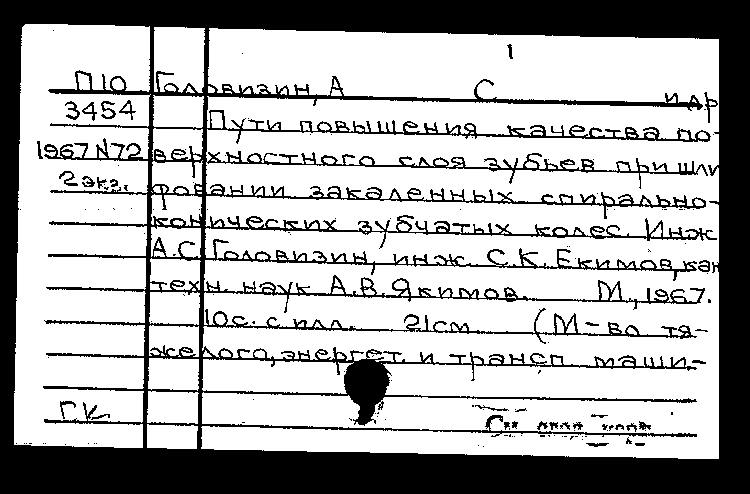 1
П10 Головизин, А С и др
3454 Пути повышения качества по-
1967 N72 верхностного слоя зубьев при шли
2 экз. фовании закаленных спирально-
конических зубчатых колес. Инж
А.С. Головизин, инж. С.К. Екимов, кан
техн. наук А.В. Якимов. М., 1967.
10 с. с илл. 21 см (М-во тя-
желого, энергет. и трансп. маши-
ГК См